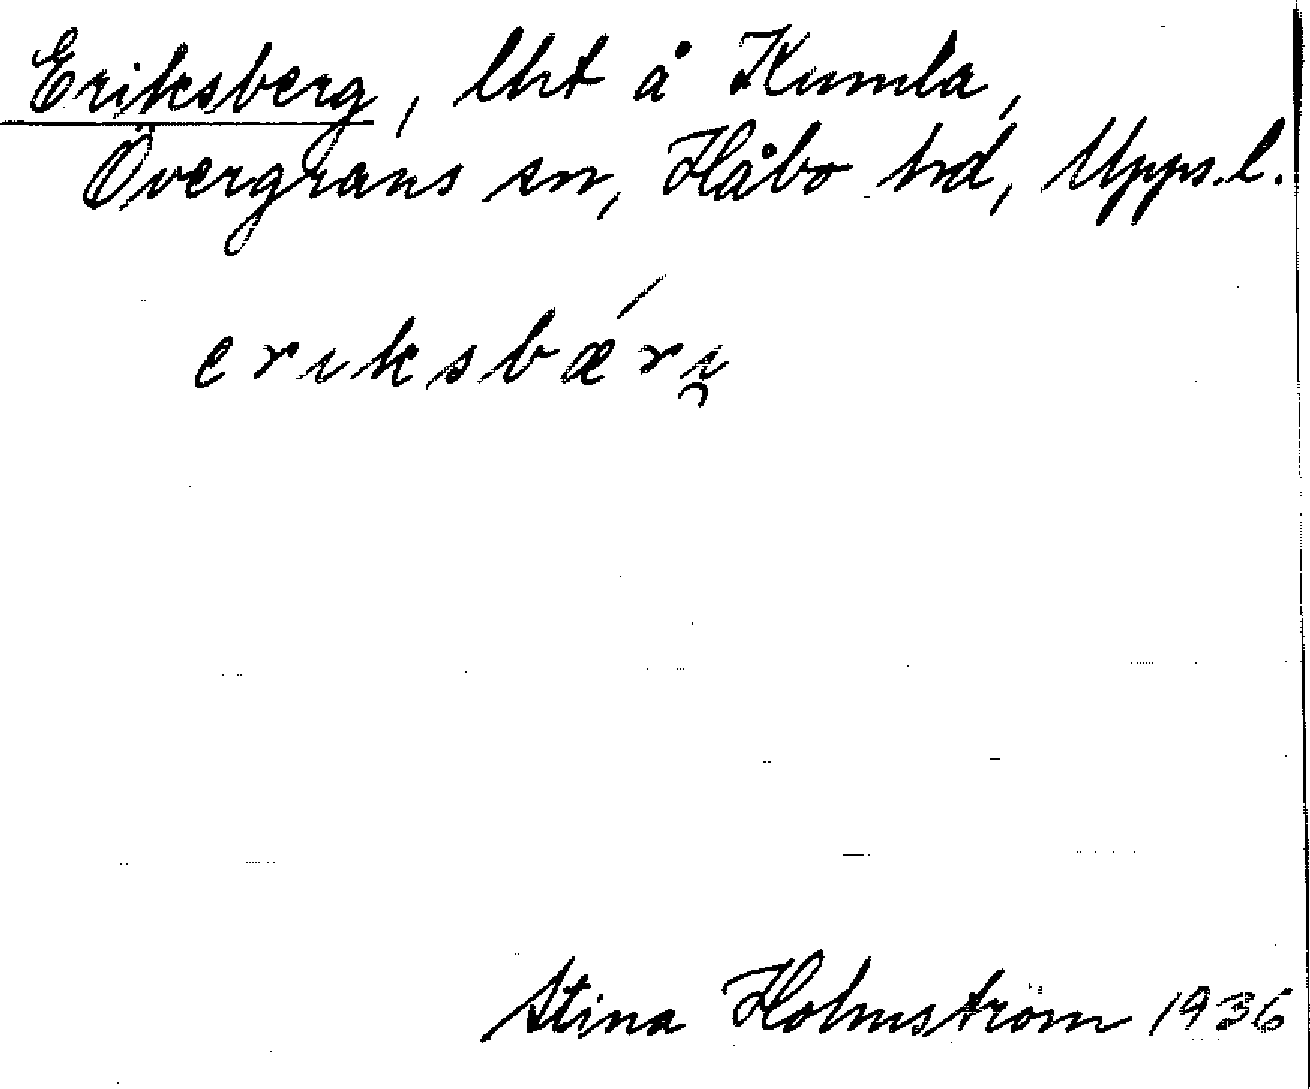 Eriksberg, lht å Kumla,
Övergrans sn, Håbo hd, Upps.l.
eriksbǽri̯
Stina Holmström 1936